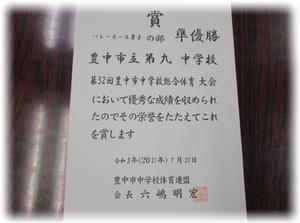 賞
バレーボール男子 の部 準優勝
豊中市立第九 中学校
第52回豊中市中学校総合体育 大会
において優秀な成績を収められ
たのでその栄誉をたたえてこれ
を賞します
令和3年(2021年)7月27日
豊中市中学校体育連盟
会長 六嶋明宏